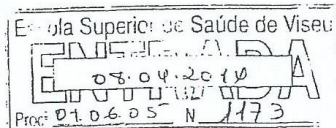 Escola Superior de Saúde de Viseu
ENTRADA
08.04.2014
Proc: 01.06.05 N 1173